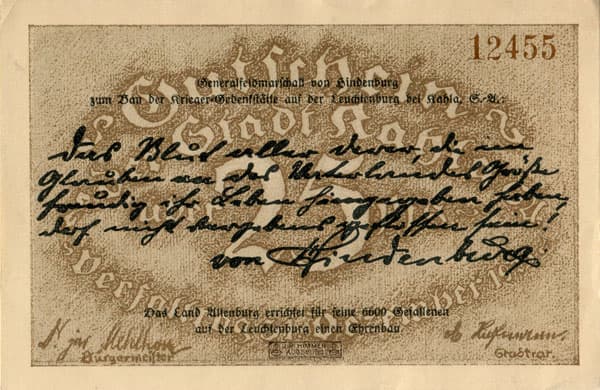 12455
Gutschein
Generalfeldmarschall von Hindenburg
zum Bau der Krieger-Gedenkstätte auf der Leuchtenburg bei Kahla, S.-A.:
Stadt Kahla
Das Blut aller derer, die im
Glauben an des Vaterlandes Größe
freudig ihr Leben hingegeben haben,
darf nicht vergebens geflossen sein!
25
von Hindenburg
Verfall
Das Land Altenburg errichtet für seine 6600 Gefallenen
auf der Leuchtenburg einen Ehrenbau.
Bürgermeister
Stadtrat.